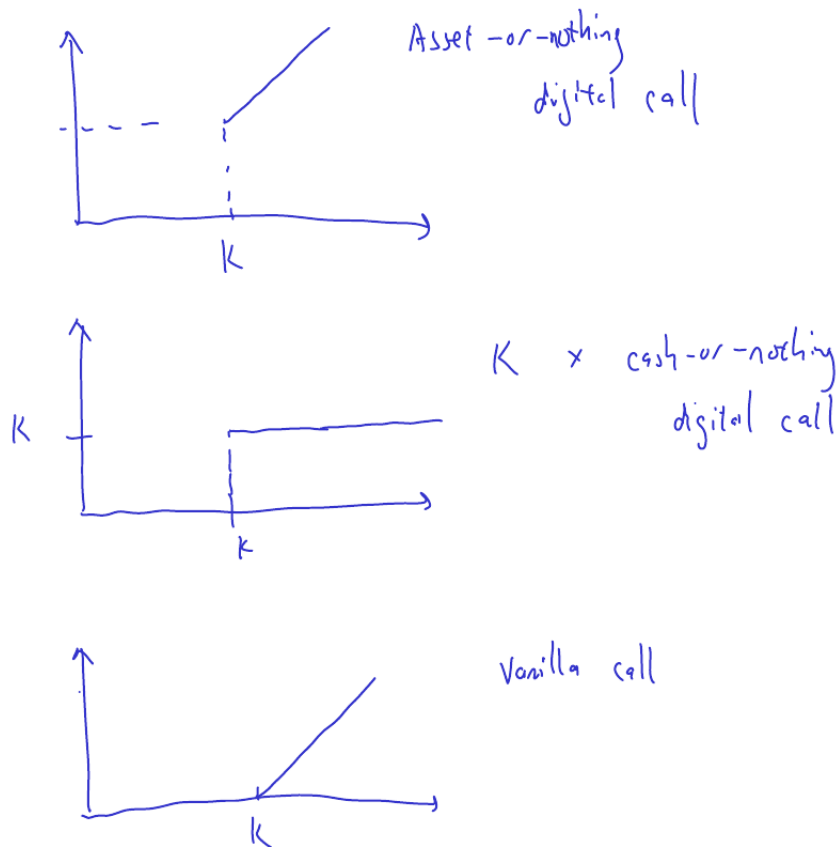 Asset-or-nothing
digital call
K
K × cash-or-nothing
digital call
K
K
Vanilla call
K